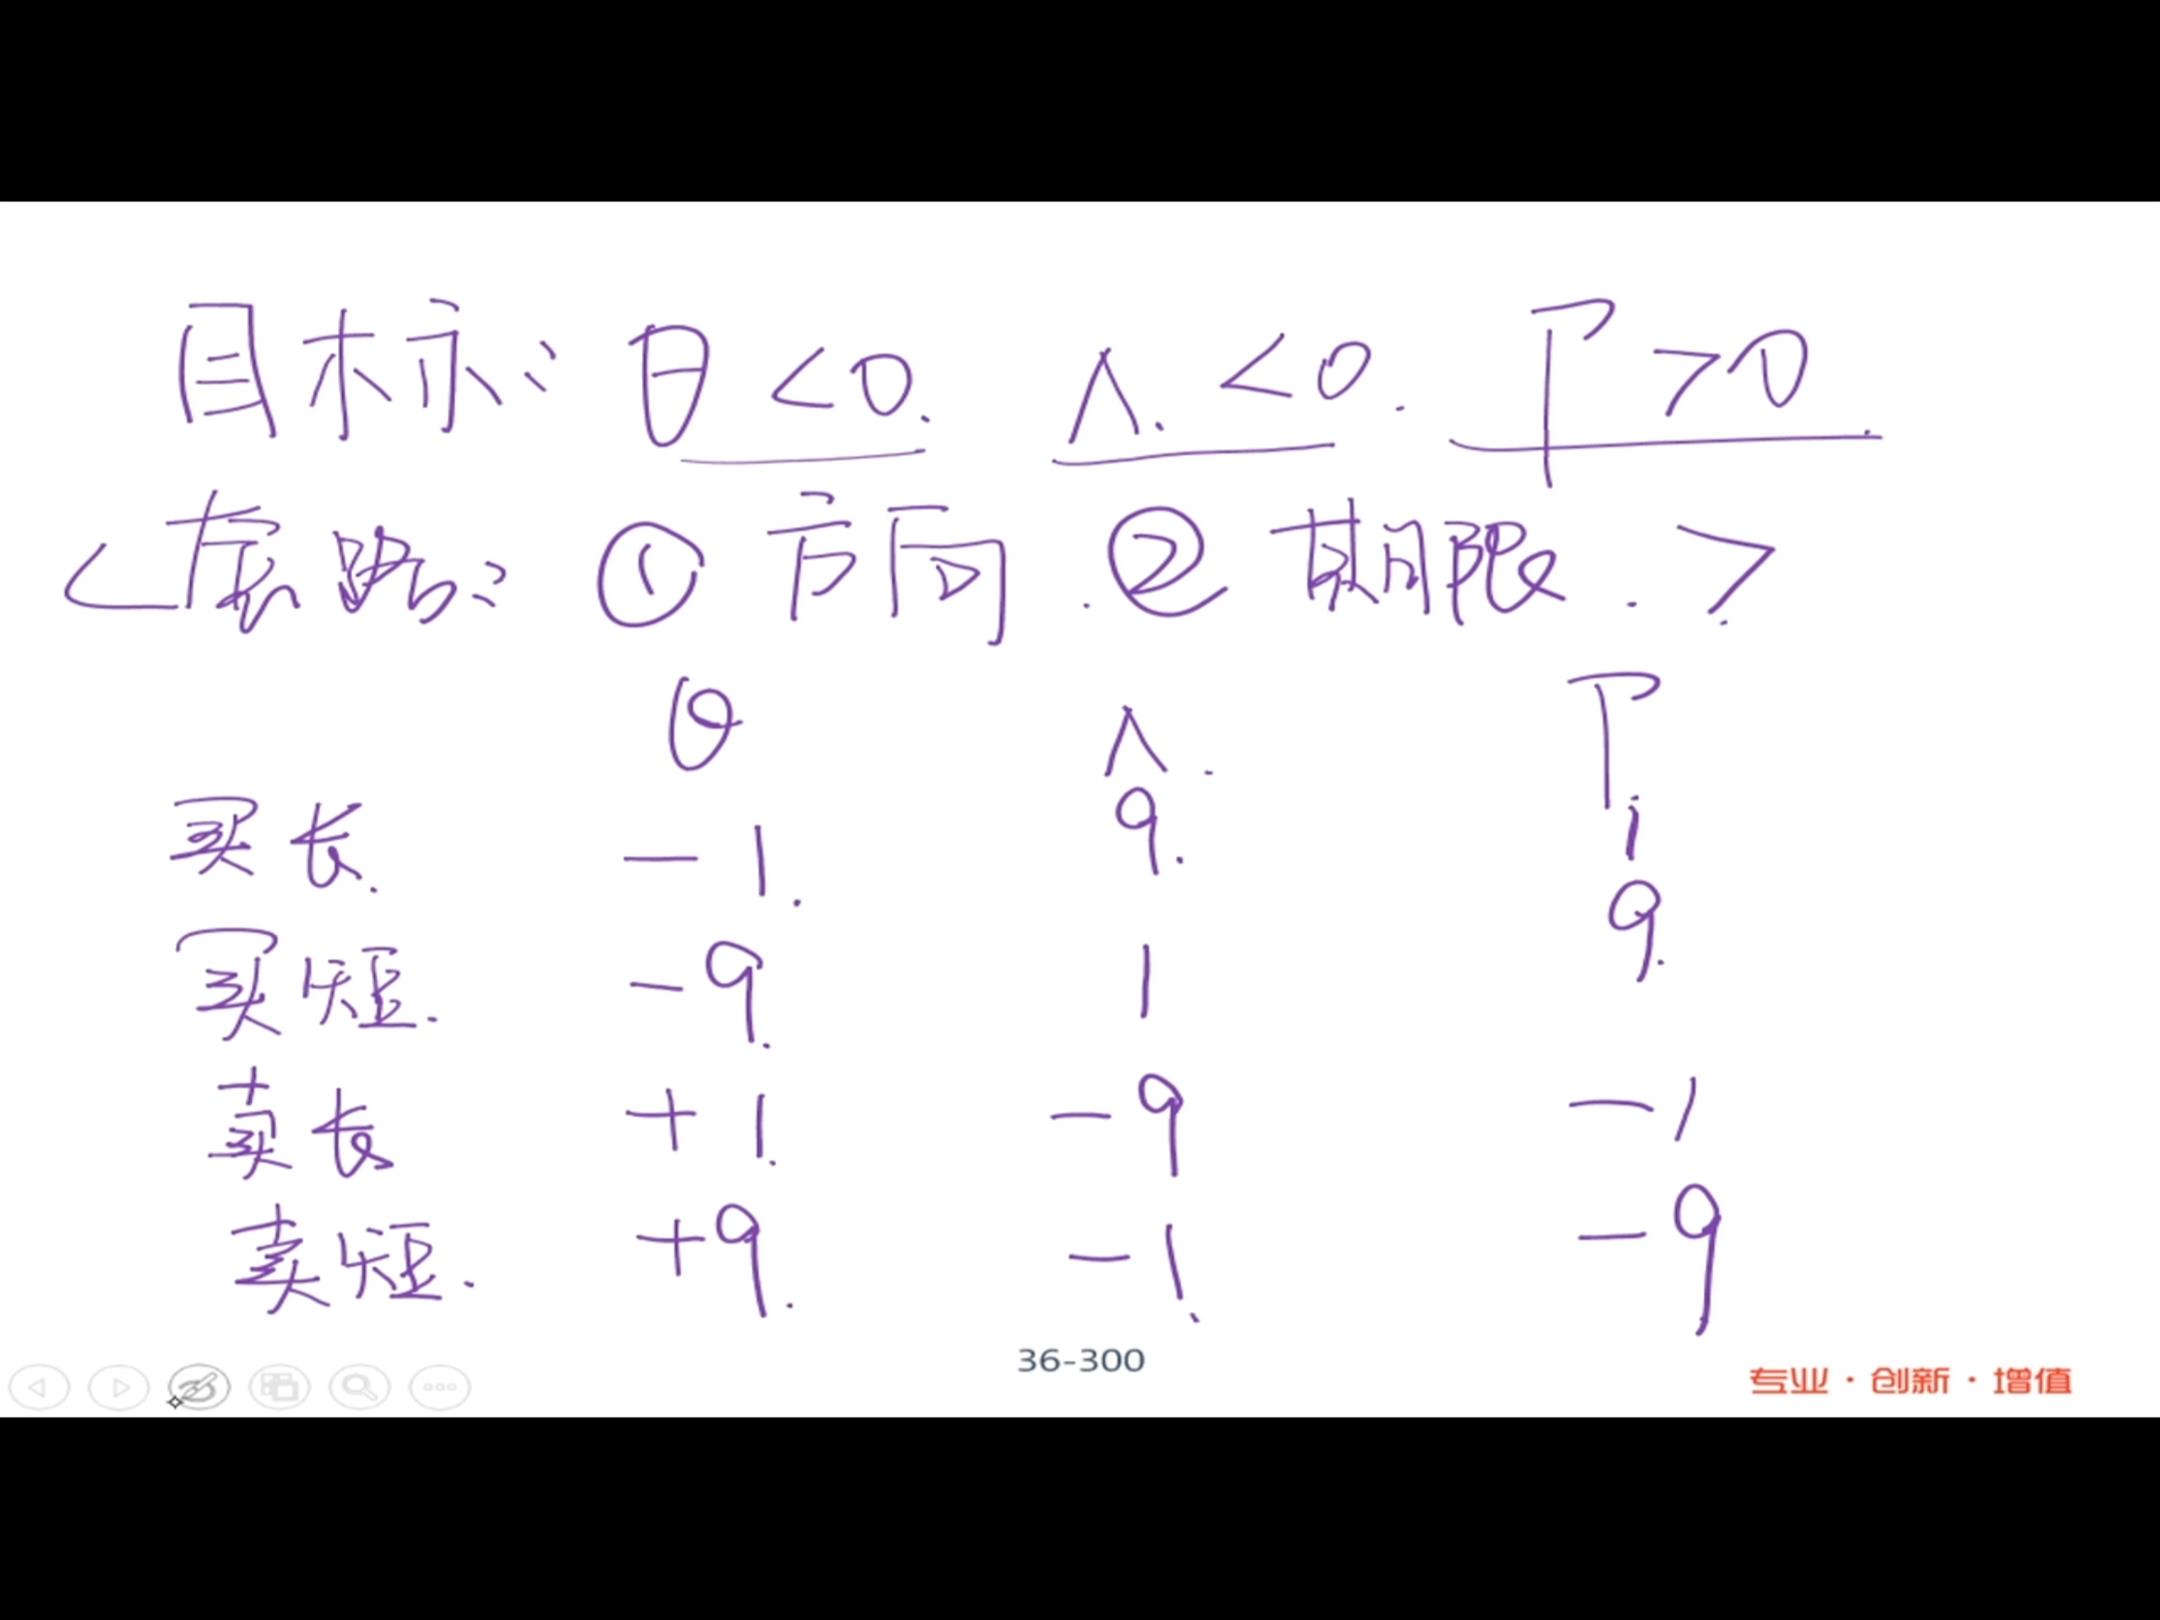 目标: θ<0. Λ. <0. Γ>0.
<展路: ① 方向. ② 期限. >
θ Λ. Γ
买长. -1. 9. 1
买短. -9. 1 9.
卖长 +1. -9 -1
卖短. +9. -1. -9
36-300
专业·创新·增值